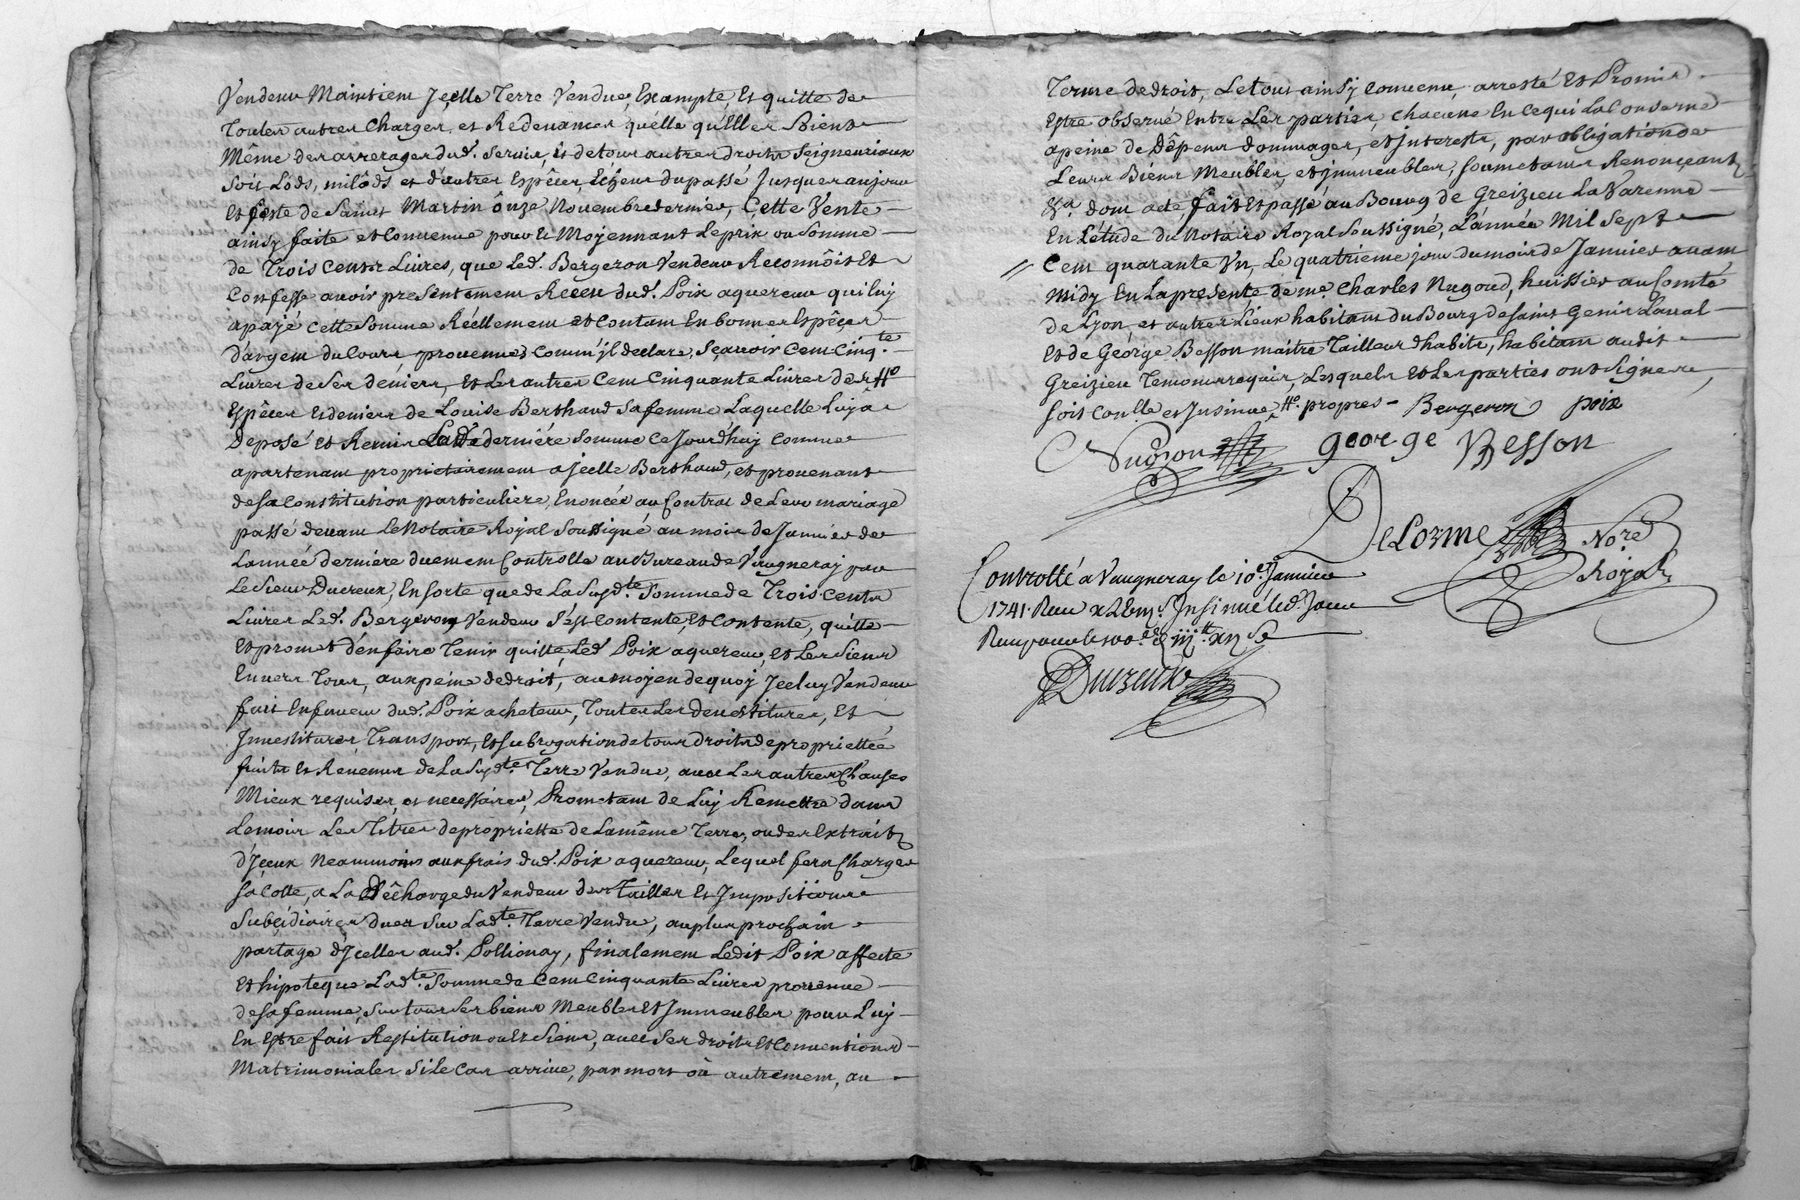 Vendeur Maintient Jcelle Terre Vendue, Exampte, Et quitte de
Toutes autres Charges, et Redevances quelle qu'Elles Soient
Même des arrerages dud. Servis, et de tous autres droits Seigneuriaux
Soit Lods, milôds et d'autres Espêces, Echeus du passé Jusques aujour
et feste de Saint Martin ônze Novembre dernier, Cette Vente
ainsy faite et Convenue pour Et Moyennant Le prix ou Somme
de Trois Cents Livres, que Led. Bergeron Vendeur Reconnôit Et
Confesse avoir presentement Receu dud. Poix aquereur qui luy
apayé cette Somme Réellement et Contant En bonnes Espêces
d'argent du Cours provenues Comm'jl declare, Sçavoir Cent Cinq.te
Livres de Ses deniers, et Les autres Cent Cinquante Livres des Ho
Espêces et deniers de Louise Berthaud Sa femme Laquelle Luy a
Deposé et Remis Lad.e derniére Somme Ce Jourdhuy Comme
apartenant proprietairement a Jcelle Berthaud, et provenant
de Sa Constitution particuliere, Enoncée au Contrat de Leur mariage
passé devant Le Notaire Royal Soussigné au mois de Janvier de
Lannée derniére duement Controllé au Bureau de Vaugneray par
Le Sieur Ducreux, En Sorte que de La Susd.te Somme de Trois Cents
Livres Led. Bergeron Vendeur S'est Contenté, Et Contente, quitte
Et promet d'en faire Tenir quitte, Led. Poix aquereur, et Les Siens
Envers Tous, aux peine de droit, au moyen de quoy Jceluy Vendeur
fait En faveur dud. Poix acheteur, Toutes Les devestitures, Et
Jnvestitures Transport, et Subrogation de tous droits de propriettée
fruits et Revenus de La Susd.te Terre Vendue, avec Les autres Clauses
Mieux requises, et necessaires, Prometant de Luy Remettre dans
Le mois Les Titres de propriette de La même Terre, ou des Extraits
d'Jceux Neammoins aux frais dud. Poix aquereur, Lequel fera Charger
Sa Cotte, a La Dêcharge du Vendeur des Tailles Et Jmpositions
Subsidiaires dues Sur Lad.te Terre Vendue, au plus prochain
partage d'Jcelles aud. Pollionay, finalement Ledit Poix affecte
et hipoteque Lad.te Somme de Cent Cinquante Livres provenue
de Sa femme, Sur tous Ses biens Meubles Et Jmmeubles pour Luy
En Estre fait Restitution ou Et Siens, avec Ses droits Et Conventions
Matrimoniales Si Le Cas arrive, par mort où autrement, au
Terme de droit, Le tout ainsy Convenu, arresté Et Promis
Estre observé Entre Les parties, Chacune En Ce qui La Conserne
apeine de Dêpens dommages, et Jnterests, par obligation de
Leurs Biens Meubles, et Jmmeubles, Soumetants Renonçeants
&.a dont acte, fait Et passé au Bourg de Greizieu La Varenne
En L'étude du Notaire Royal Soussigné, L'année Mil Sept
Cent quarante Un, Le quatrième jour du mois de Janvier avant
midy En La presente de me. Charles Nugoud, huissier au Comté
de Lyon, et autres Lieux habitant du Bourg de Saint Genis Laval
Et de George Besson maitre Tailleur dhabits, habitant audit
Greizieu Temoins requis, Lesquels et Les parties ont Signe
Soit Con.lle et Jnsinue, Ho. propres - Bergeron poix
George Besson
DeLorme No.re
Royal
Controllé a Vaugneray le 10.e Janvier
1741. Receu
Ducreux